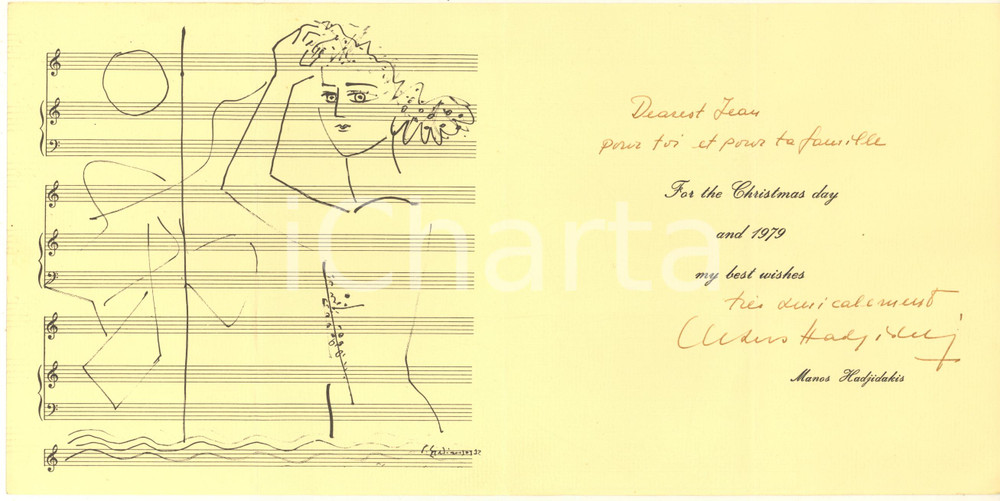 Dearest Jean
pour toi et pour ta famille
For the Christmas day
and 1979
my best wishes
très amicalement
Manos Hadjidakis
iCharta